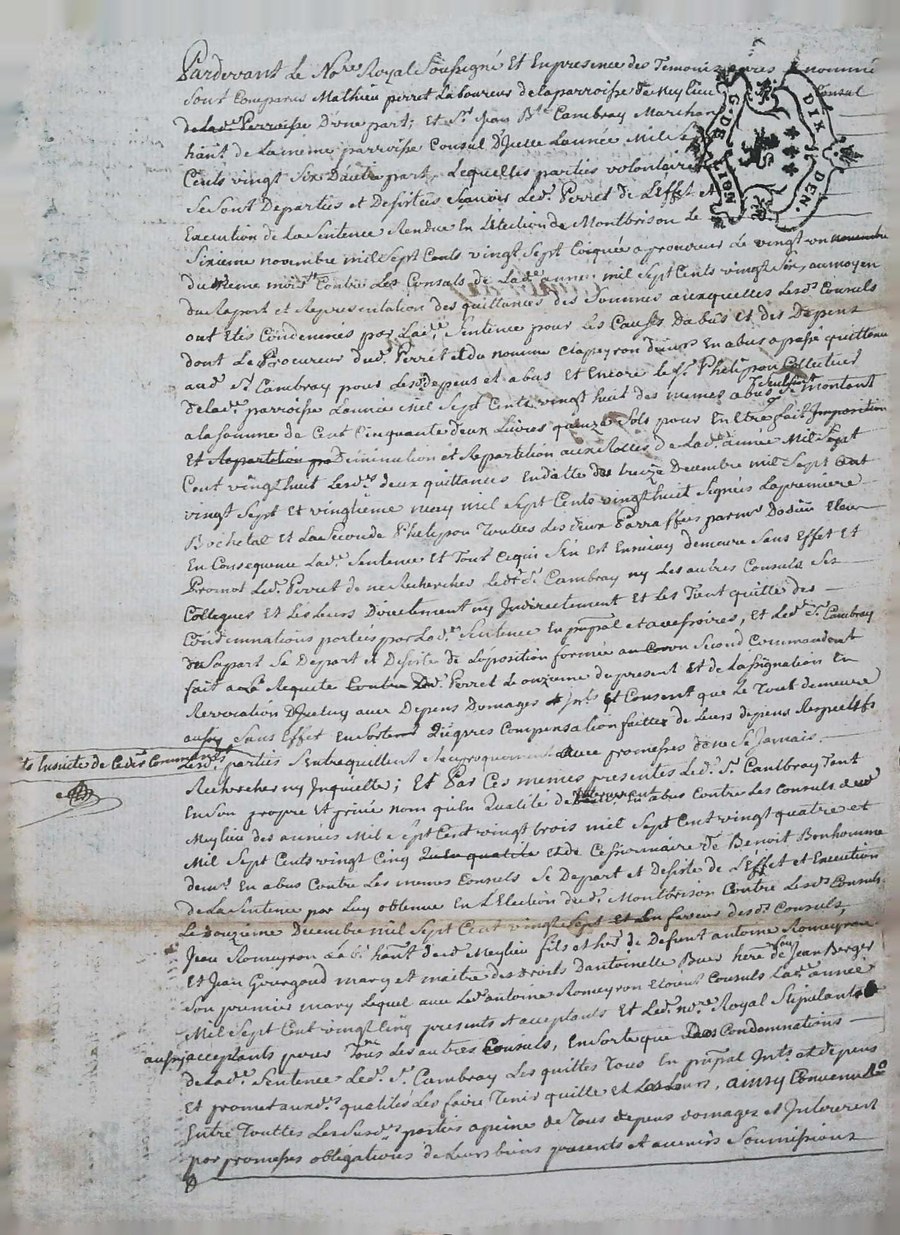 Pardevant Le No.re Royal Soussigné Et En presence des Temoins nommé
Sont Comparus Mathieu perret Laboureur de la parroisse de Meylieu Consul
de Lad.e Perroisse D'une part; Et S.r Jean B.te Cambray Marchan
hant de La meme parroisse Consul D'jcelle Lannée Mil
Cents vingt Six Dautre part, Lequelles parties volontaire
Se Sont Departies et Desistées Sçavoir Led.t Perret de L'effet et
Execution de la Sentence Rendue En LElection de Montbrison Le
Sixieme novembre mil Sept Cents vingt Sept Le vingt un novembre
du meme mois Contre Les Consuls de Lad.e année mil Sept Cents vingt Six, au moyen
du Raport et Representation des quittances des Sommes auxquelles Lesd.s Consuls
ont Etés Condemnés par Lad.e Sentence pour Les Causes Dabus Et des Depens
dont Le Procureur dud.t Perret et du nommé Clapeyron En abus a passé quittance
aud.t S.r Cambray pour Lesd.s depens et abus Et Encore le S.r Phelipon Collecteur
de lad.e parroisse Lannée mil Sept Cents vingt huit des memes abus montant
a la Somme de Cent Cinquante deux Livres quinze Sols pour En Etre fait Imposition
Et Repartition Diminution et Repartition aux Rolles de Lad.e année Mil Sept
Cent vingt huit Lesd.s deux quittances En datte des treize Decembre mil Sept Cent
vingt Sept Et vingtieme may mil Sept Cents vingt huit Signées La premiere
Bochetal Et La Seconde Phelipon Touttes Les deux Parraffées par m.r Dosieu
En Consequence Lad.e Sentence Et Tout Ce qui Sen Est Ensuivy demeure Sans Effet Et
Promet Led.t Perret de ne Rechercher Led.t S.r Cambray ny Les autres Consuls Ses
Collegues Et Les Leurs Directement ny Indirectement Et Les Tient quitte des
Condemnations portées par Lad.e Sentence En prīpal et accessoires, Et Led.t S.r Cambray
de Sa part Se Depart et Desiste de L'oposition formée au Second Commandement
fait a La Requete Led.t Perret Le onzieme du present et de Lassignation En
Revocation D'jceluy avec Depens Domages Jnts Et Consent que Le Tout demeure
aussy Sans Effet En Sorte Compensation faitte de Leurs depens Respectifs
ts Ensuite de Ced.t Command.t
Lesd.s parties S'entrequittent Reciproquement avec promesses de ne Se Jamais
Rechercher ny Inquietter; Et Par Ces memes presentes Led.t S.r Cambray Tant
En Son propre Et privé nom qu'en qualité de En abus Contre Les Consuls dud
Meylieu des années Mil Sept Cent vingt trois mil Sept Cent vingt quatre et
Mil Sept Cents vingt Cinq Et de Cessionnaire de Benoit Bonhomme
dem.r En abus Contre Les memes Consuls Se Depart et Desiste de L'Effet et Execution
de La Sentence par Luy obtenue En L'Election dud.t Montbrison Contre Lesd.s Consuls
Le Douzieme Decembre mil Sept Cent vingt Sept Et En faveur desd.s Consuls,
Jean Romeyron Lab.r hant dud.t Meylieu fils et her.r de Defunt antoine Romeyron
Et Jean Gourgaud mary et maitre des droits Dantoinette Buer here de Jean Berger
Son premier mary Lequel avec Led.t antoine Romeyron Etoient Consuls Lad.e année
Mil Sept Cent vingt Cinq presents et acceptants Et Led.t no.re Royal Stipulant
aussy acceptants pour Tous Les autres Consuls, En Sorte que Des Condemnations
de Lad.e Sentence Led.t S.r Cambray Les quitte Tous En prīpal Jnts et depens
Et promet auxd.s qualités Les faire Tenir quitte Et Les Leurs, ainsy Convenu
Entre Touttes Lesusd.s parties a peine de Tous depens domages et Interests
par promesses obligations de Leurs biens presents et avenirs Soumissions